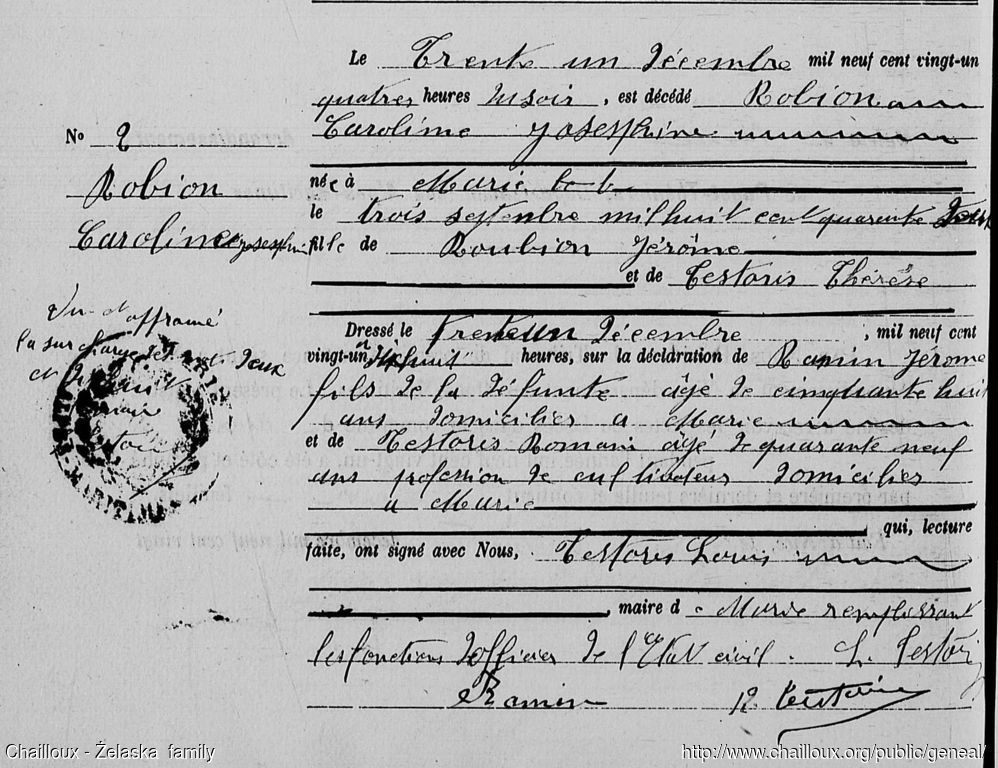 Le Trente un Décembre mil neuf cent vingt-un
quatres heures du soir, est décédé Robion
Caroline Joserphine
No 2
Robion
Caroline Joserphine
née à Marie
le trois septenbre mil huit cent quarente deux
fille de Roubion Jérôme
et de Testoris Thérèse
Vu et affrouvé
la surcharge des mots deux
et dixhuit
Dressé le trenteun Décembre, mil neuf cent
vingt-un à Dixhuit heures, sur la déclaration de Ramin Jérome
fils de la défunte âgé de cinquante huit
ans domicilies a Marie
et de Testoris Romain âgé de quarante neuf
ans profession de cultivateurs domicilies
a Marie
qui, lecture
faite, ont signé avec Nous, Testoris Louis
maire de Marie remplissant
les fonctions d'officier de l'Etat civil. L. Testori
Ramin R. Testoris
Chailloux - Želaska family
http://www.chailloux.org/public/geneal/